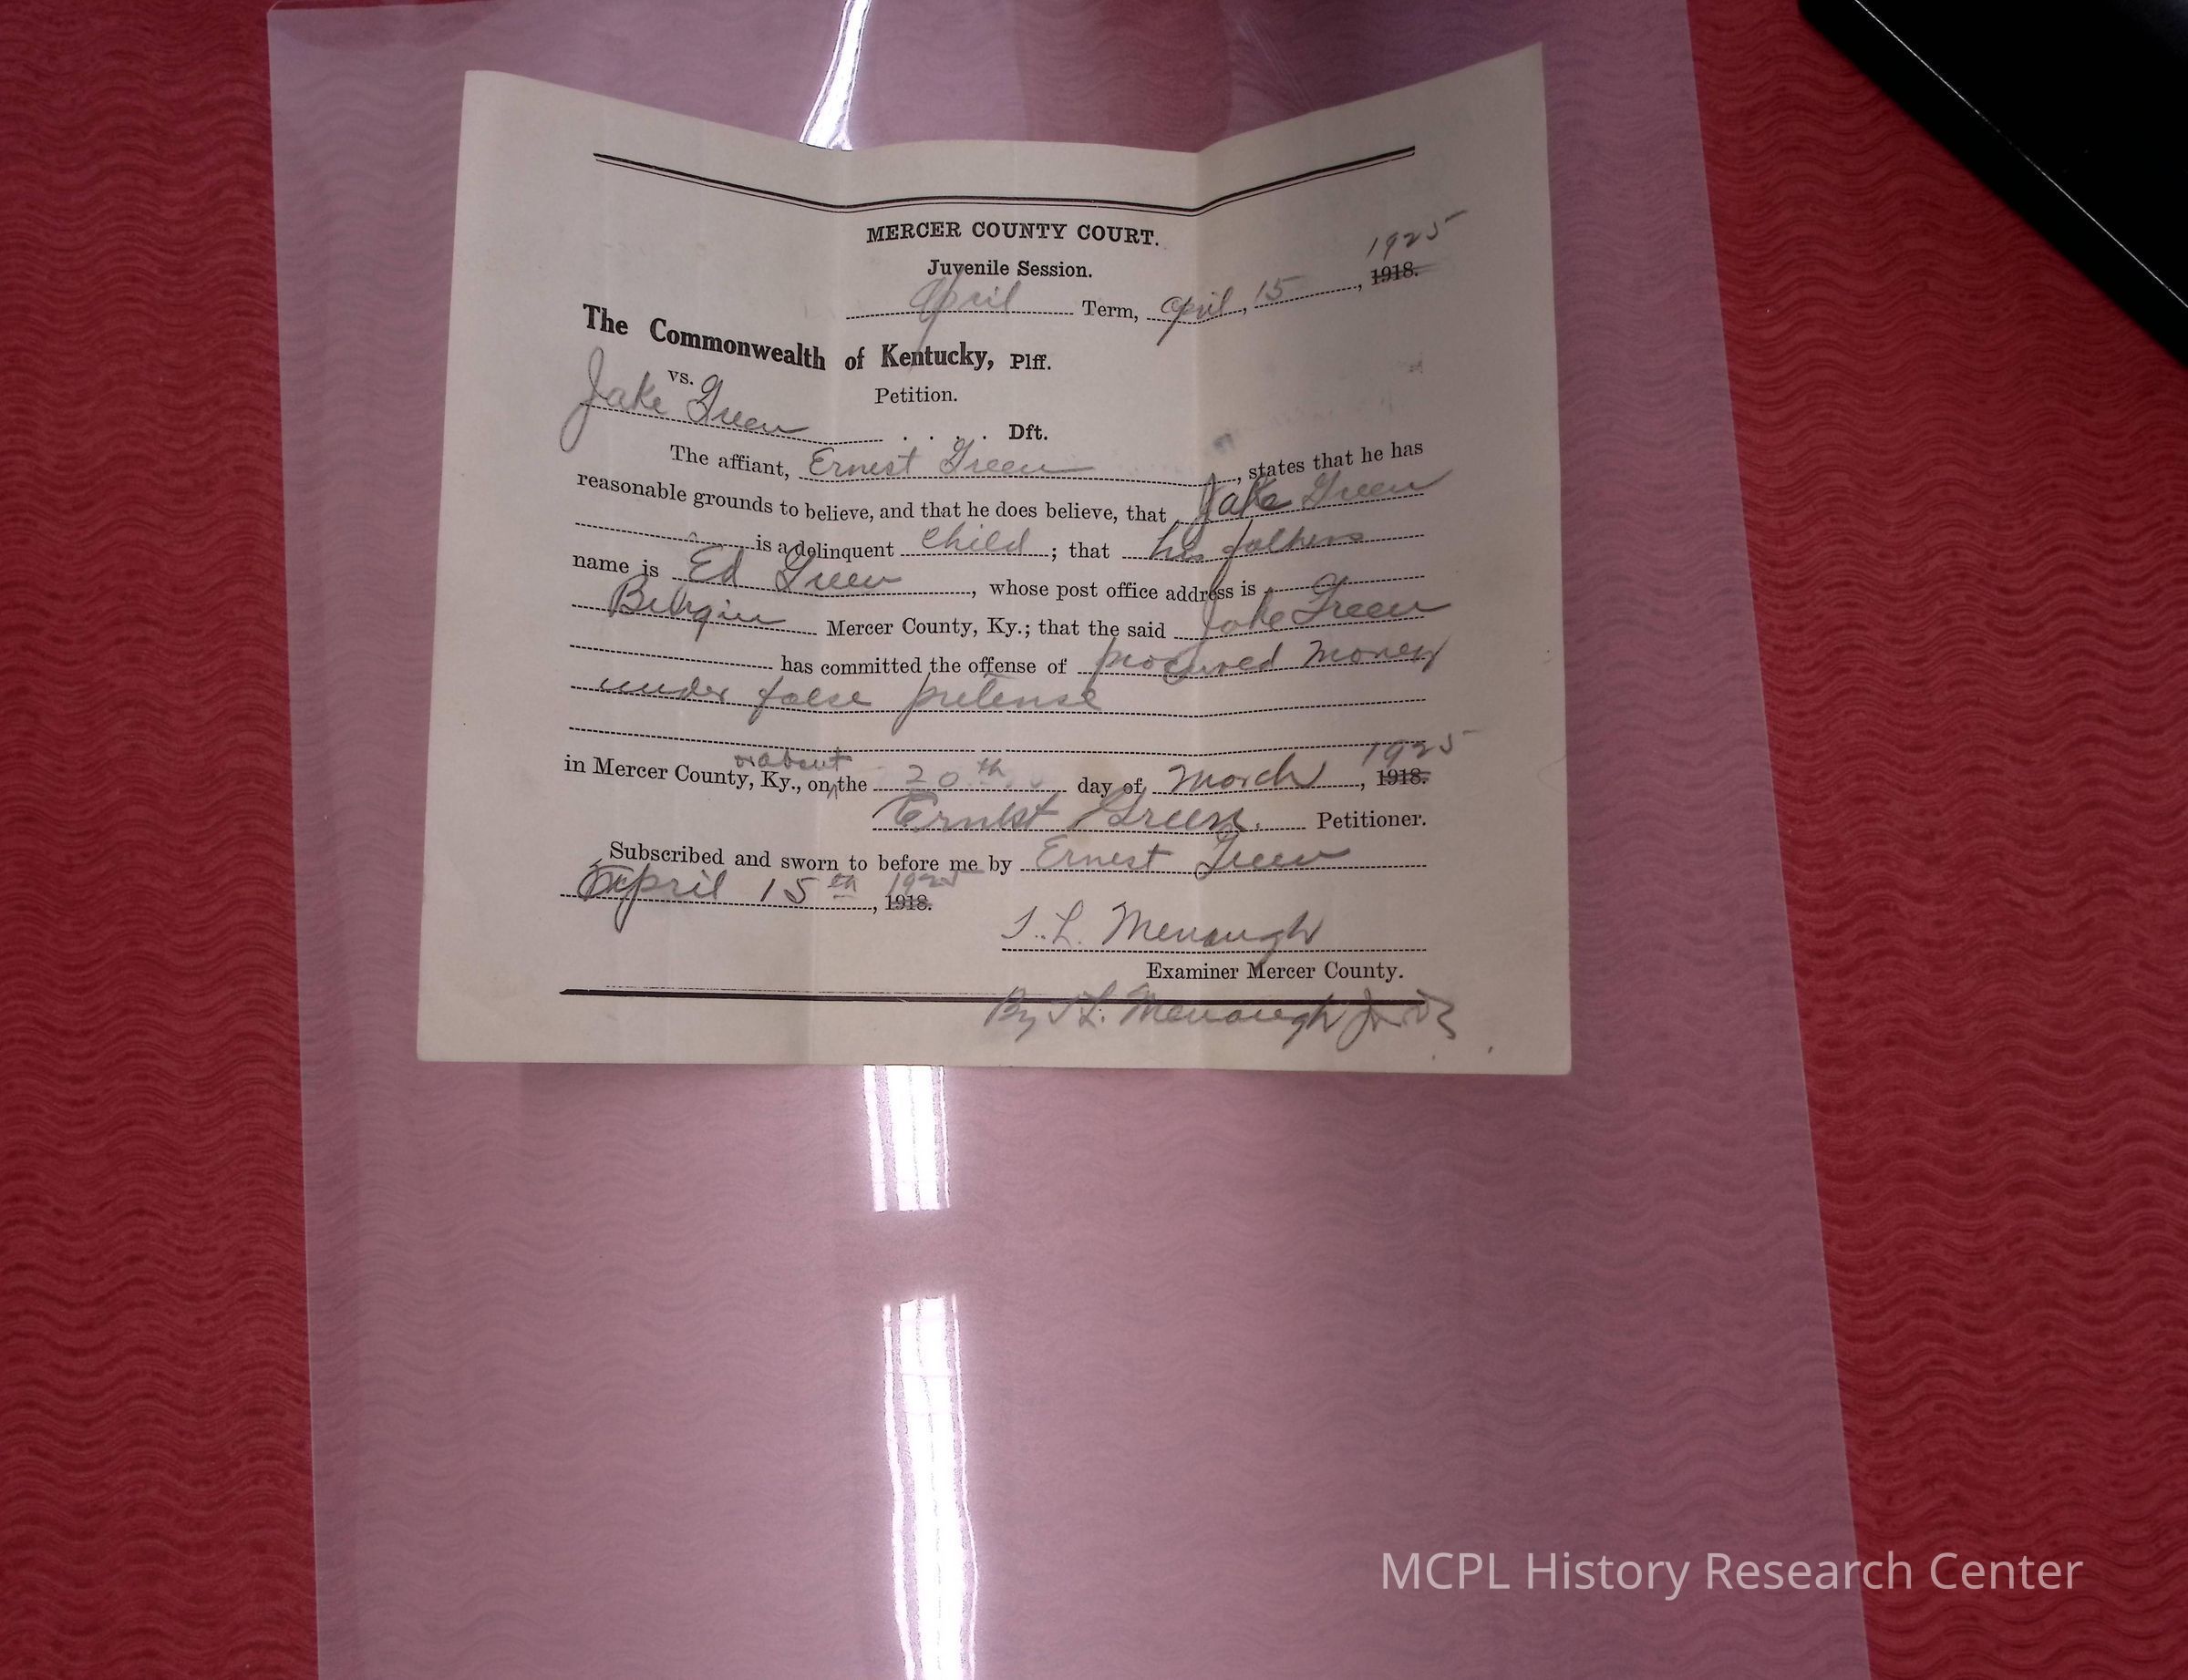 MERCER COUNTY COURT.
Juvenile Session.
1925
April Term, April, 15, 1918.
The Commonwealth of Kentucky, Plff.
vs.
Petition.
Jake Green . . . . Dft.
The affiant, Ernest Green, states that he has
reasonable grounds to believe, and that he does believe, that Jake Green
is a delinquent Child; that his fathers
name is Ed Green, whose post office address is
Burgin Mercer County, Ky.; that the said Jake Green
has committed the offense of procured money
under false pretense
or about 1925
in Mercer County, Ky., on the 20th day of March, 1918.
Ernest Green. Petitioner.
Subscribed and sworn to before me by Ernest Green
April 15th, 1925 1918.
T. L. Menaugh
Examiner Mercer County.
By T L. Menaugh Jr
MCPL History Research Center